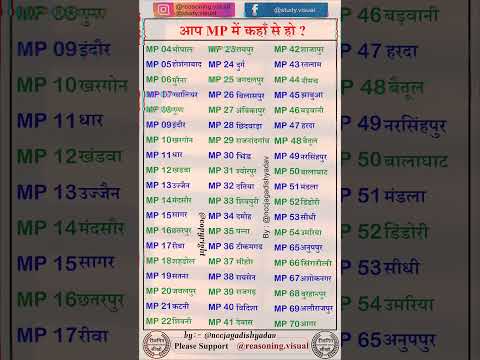 @reasoning.visual @study.visual
आप MP में कहाँ से हो ?
MP 04 भोपाल MP 23 रायपुर MP 42 शाजापुर
MP 05 होशंगाबाद MP 24 दुर्ग MP 43 रतलाम
MP 06 मुरैना MP 25 जगदलपुर MP 44 नीमच
MP 07 ग्वालियर MP 26 बिलासपुर MP 45 झाबुआ
MP 08 गुना MP 27 अंबिकापुर MP 46 बड़वानी
MP 09 इंदौर MP 28 छिंदवाड़ा MP 47 हरदा
MP 10 खरगोन MP 29 राजनांदगांव MP 48 बैतूल
MP 11 धार MP 30 भिंड MP 49 नरसिंहपुर
MP 12 खंडवा MP 31 श्योपुर MP 50 बालाघाट
MP 13 उज्जैन MP 32 दतिया MP 51 मंडला
MP 14 मंदसौर MP 33 शिवपुरी MP 52 डिंडोरी
MP 15 सागर MP 34 दमोह MP 53 सीधी
MP 16 छतरपुर MP 35 पन्ना MP 54 उमरिया
MP 17 रीवा MP 36 टीकमगढ MP 65 अनुपपुर
MP 18 शहडोल MP 37 सीहोर MP 66 सिंगरौली
MP 19 सतना MP 38 रायसेन MP 67 अशोकनगर
MP 20 जबलपुर MP 39 राजगढ़ MP 68 बुरहानपुर
MP 21 कटनी MP 40 विदिशा MP 69 अलीराजपुर
MP 22 सिवनी MP 41 देवास MP 70 आगर
@copyright
By : @nccjagadishyadav
by:- @nccjagadishyadav
Please Support @reasoning.visual
MP 09 इंदौर
MP 10 खरगोन
MP 11 धार
MP 12 खंडवा
MP 13 उज्जैन
MP 14 मंदसौर
MP 15 सागर
MP 16 छतरपुर
MP 17 रीवा
46 बड़वानी
47 हरदा
48 बैतूल
49 नरसिंहपुर
50 बालाघाट
51 मंडला
52 डिंडोरी
53 सीधी
54 उमरिया
65 अनुपपुर